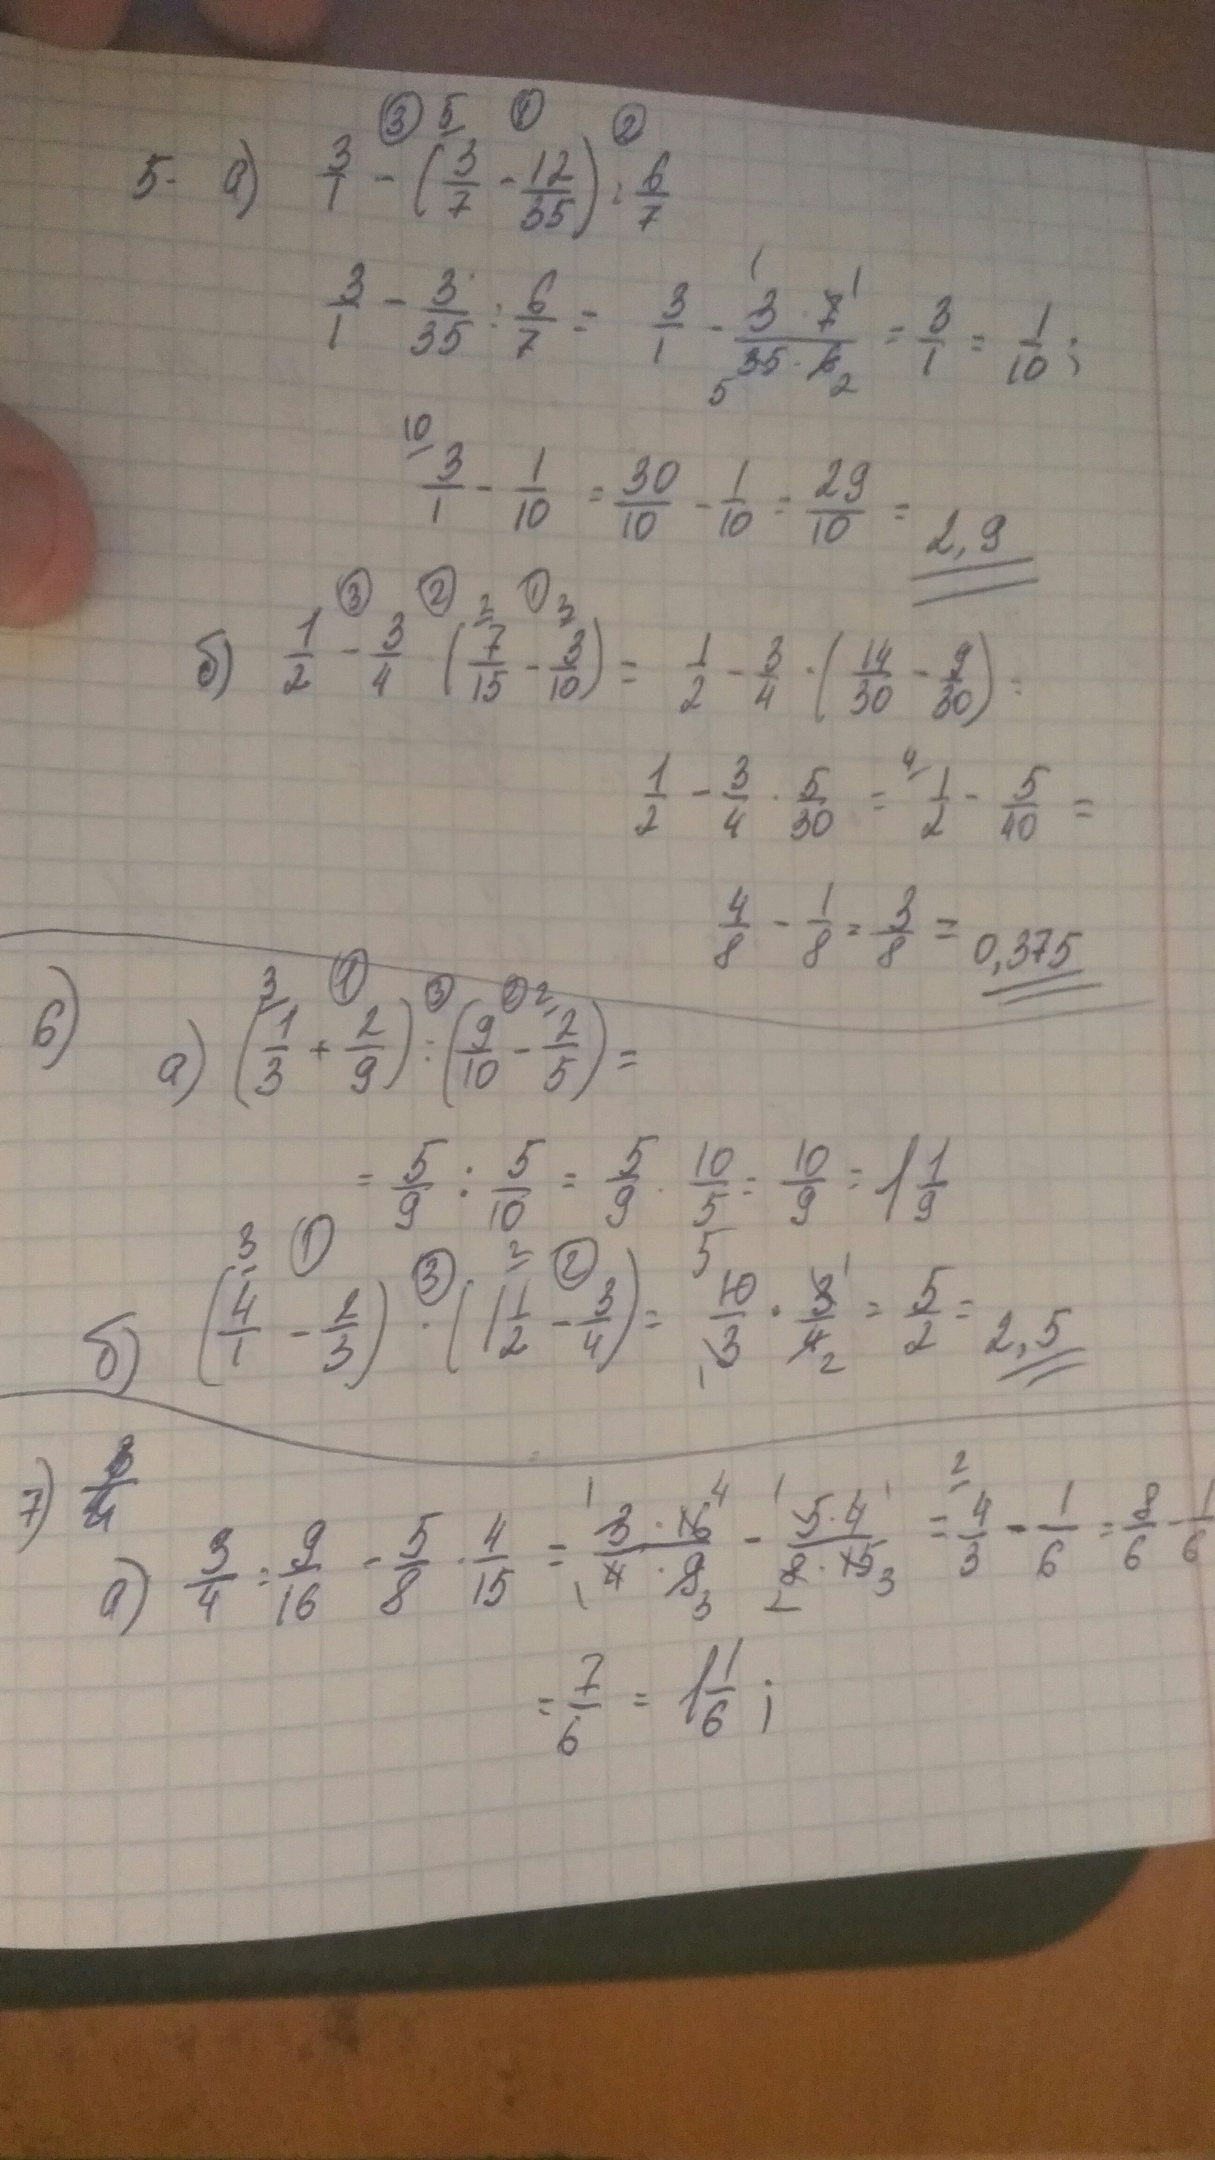 ③ 5 ① ②
5. а) 3/1 - (3/7 - 12/35) : 6/7
3/1 - 3/35 : 6/7 = 3/1 - 3·7/35·6 = 3/1 = 1/10 ;
10 3/1 - 1/10 = 30/10 - 1/10 = 29/10 = 2,9
③ ② 2 ① 3
б) 1/2 - 3/4 (7/15 - 3/10) = 1/2 - 3/4 · (14/30 - 9/30) =
1/2 - 3/4 · 5/30 = 4 1/2 - 5/40 =
4/8 - 1/8 = 3/8 = 0,375
3 ① ③ ② 2
6) а) (1/3 + 2/9) : (9/10 - 2/5) =
= 5/9 : 5/10 = 5/9 · 10/5 = 10/9 = 1 1/9
3 ① ③ 2 ② 5
б) (4/1 - 2/3) · (1 1/2 - 3/4) = 10/3 · 3/4 = 5/2 = 2,5
7)
а) 3/4 : 9/16 - 5/8 · 4/15 = 3·16/4·9 - 5·4/8·15 = 2 4/3 - 1/6 = 8/6 - 1/6
= 7/6 = 1 1/6 ;